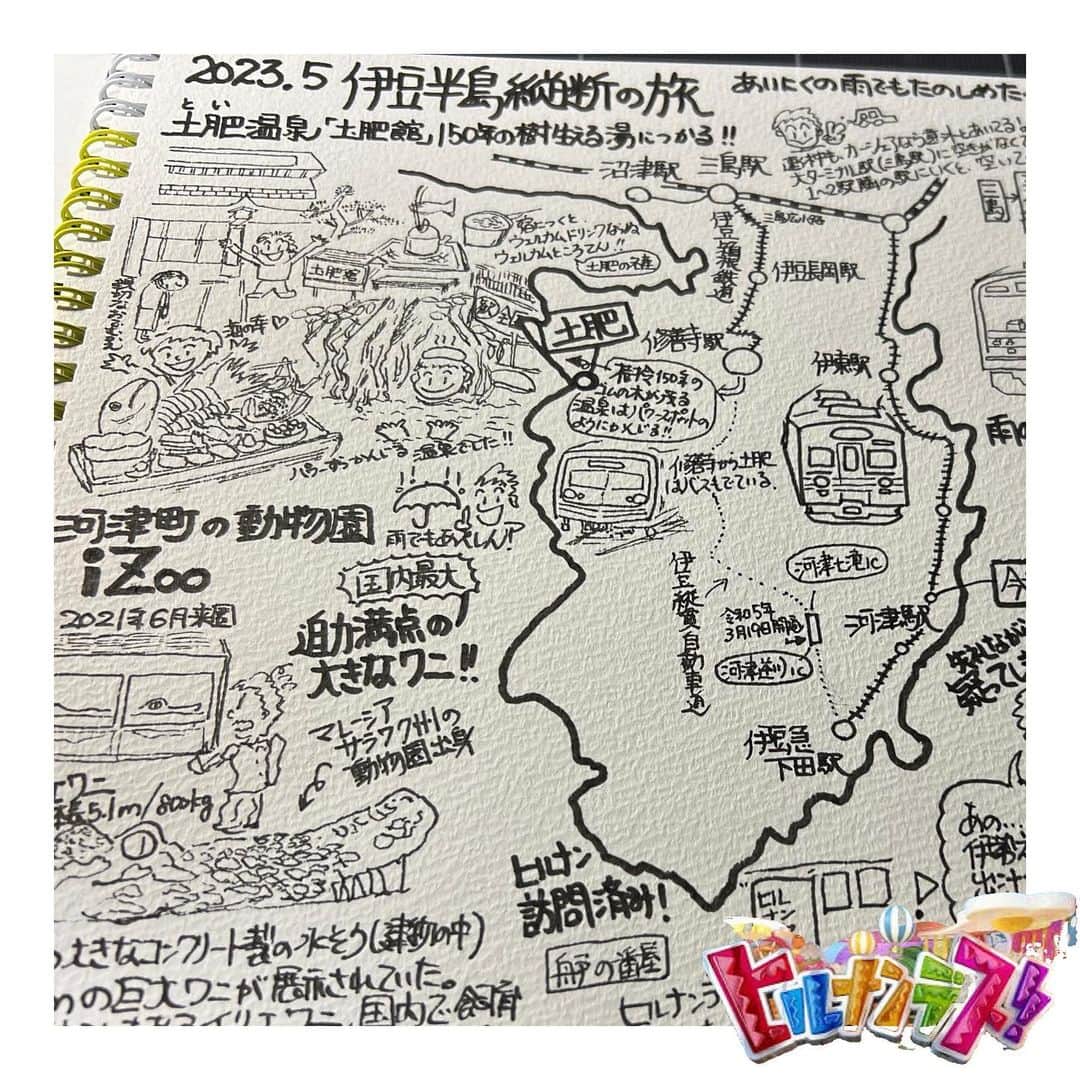 2023.5 伊豆半島縦断の旅
あいにくの雨でもたのしめた
とい
土肥温泉「土肥館」150年の樹生える湯につかる!!
沼津駅
三島駅
三島広小路
1~2駅隣の駅にいくと、空いて
宿につくと、
ウェルカムドリンクならぬ
ウェルカムところてん!!
土肥の名産
土肥館
親切なおもてなし
海の幸♡
伊豆箱根鉄道
伊豆長岡駅
土肥
修善寺駅
伊東駅
樹齢150年の
ゴムの木が茂る
温泉はパワースポットの
ようにかんじる!!
パワーすらかんじる温泉でした!!
修善寺から土肥
はバスもでている。
河津町の動物園
iZoo
2021年6月来園
雨でもあんしん!
国内最大
迫力満点の
大きなワニ!!
マレーシア
サラワク州の
動物園出身
ワニ
5.1m/800kg
伊豆縦貫自動車道
河津七滝IC
令和5年
3月19日開通
河津逆川IC
河津駅
伊豆急
下田駅
ヒルナン
訪問済み!
舟戸の番屋
ヒルナン
あの...
大きなコンクリート製の水そう(建物の中)
の巨大ワニが展示されていた。
イリエワニ、国内で飼育
ヒルナンデス!